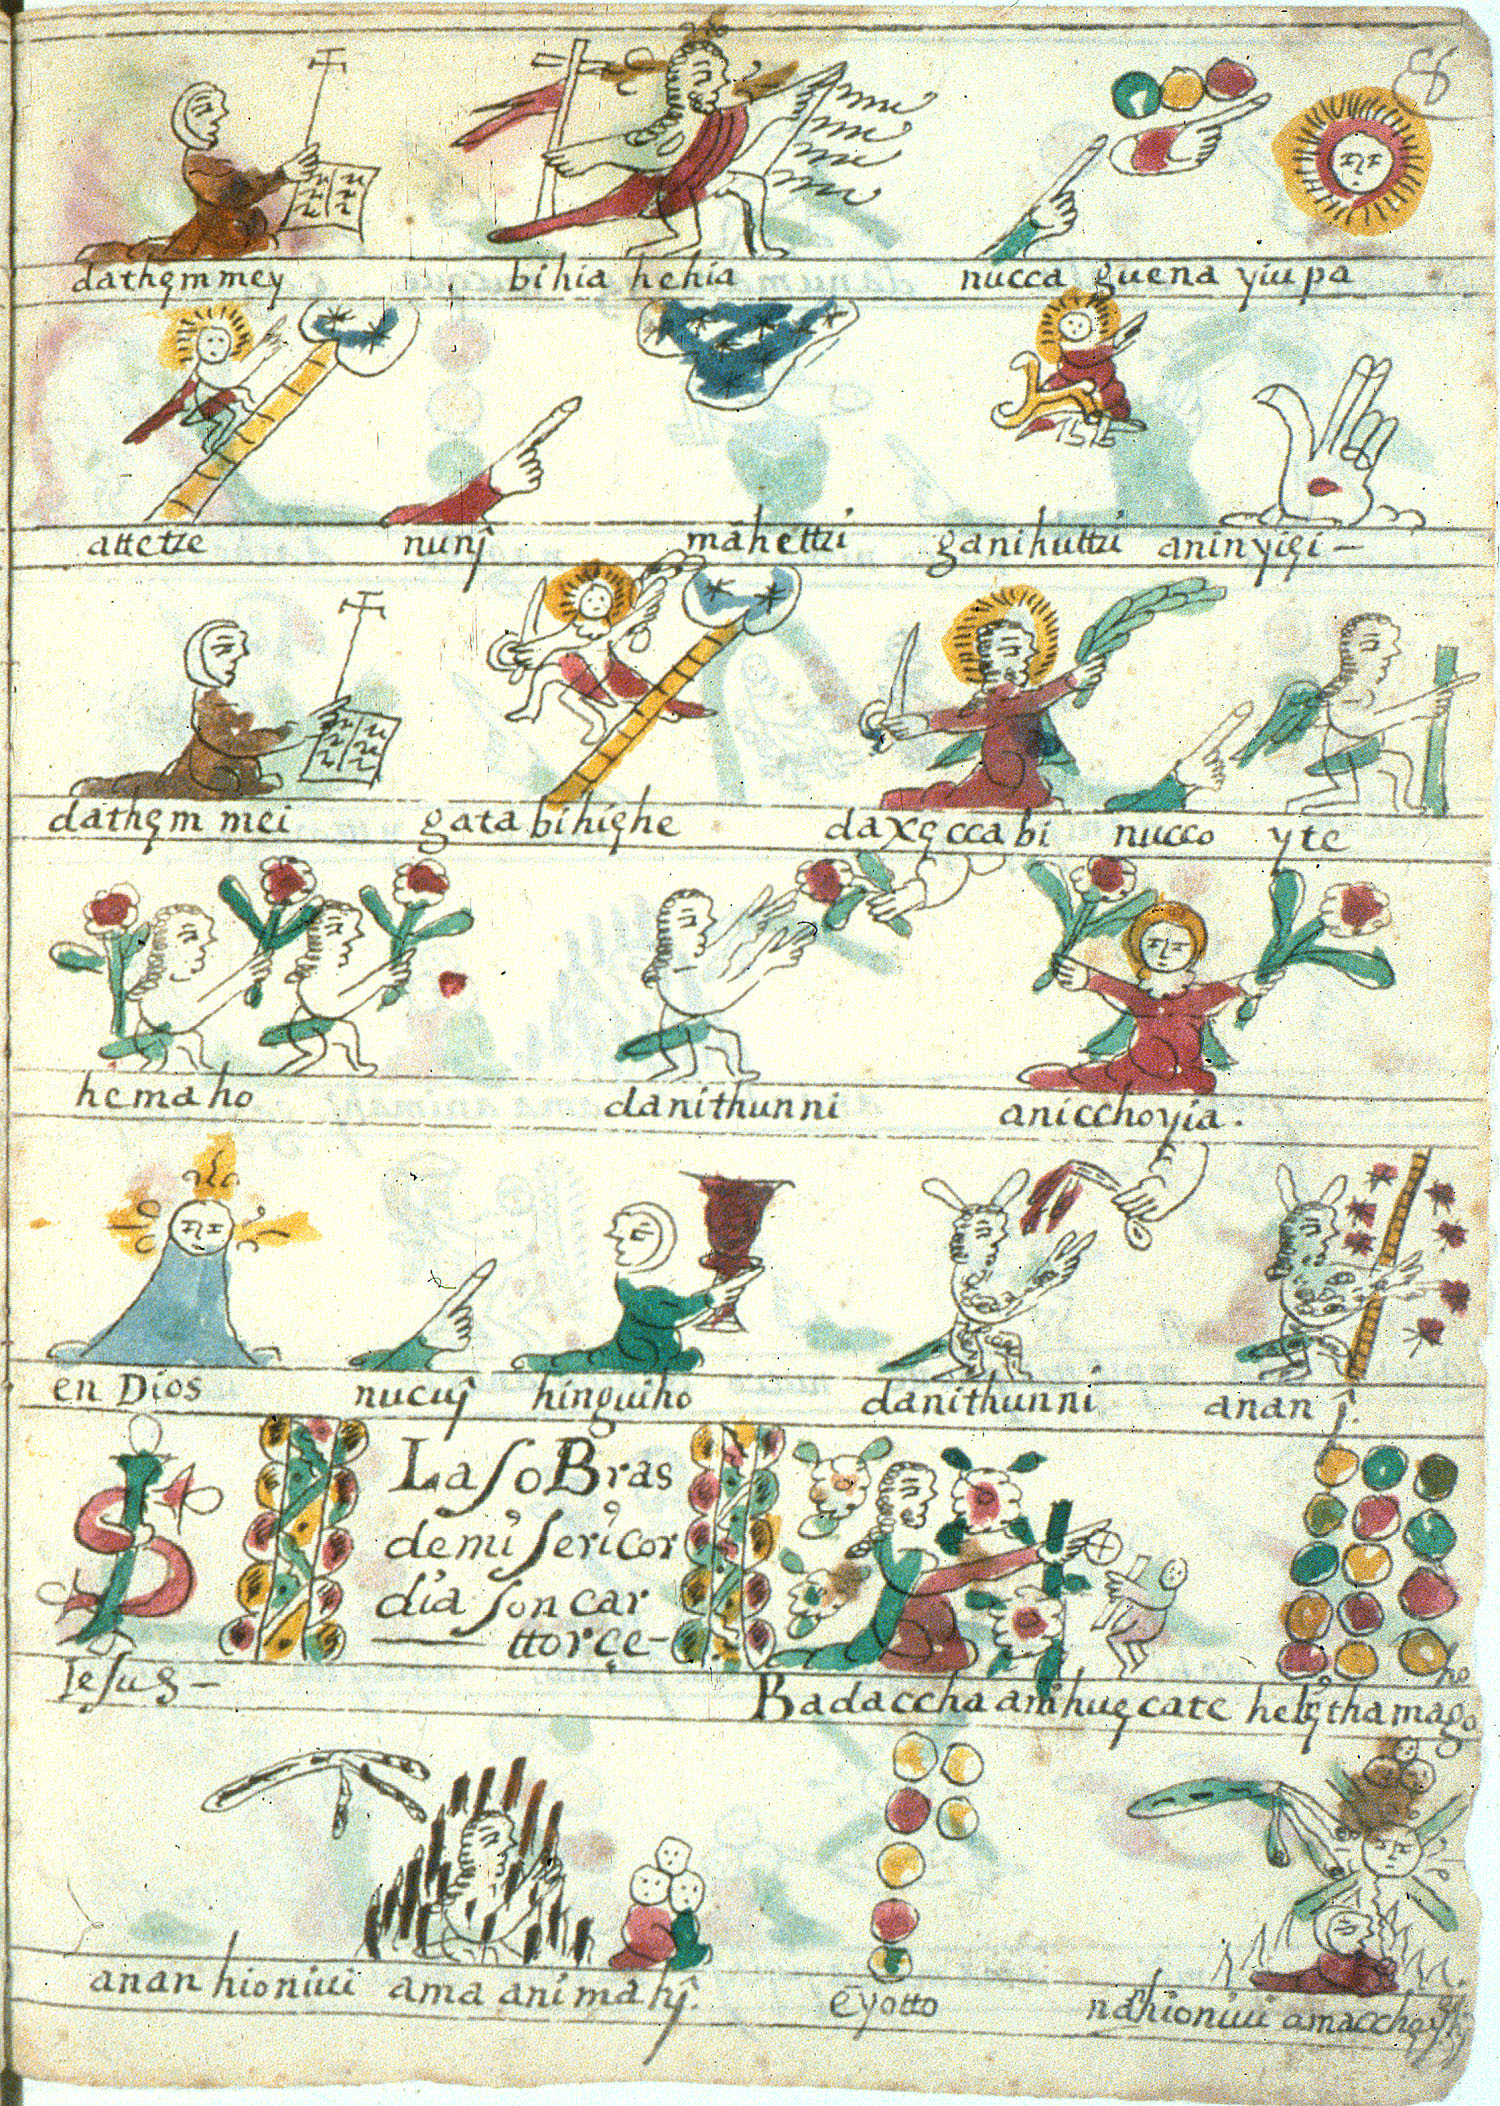 dathȩmmey bihia hehia nucca guena yiupa
attetze nunȷ̂ mahettzi ganihuttzi aninyiȩi –
dathȩm mei gata bihiȩhe daxȩccabi nucco yte
hemaho danithunni anicchoyia.
en Dios nucuȷ̂ hinguiho danithunni ananȷ̂.
Lasobras
demiſericor
dia ſon car
ttorçe –
Iesus –
Badaccha anihuȩcate
anan hioniui ama animahȷ̂. ēyotto